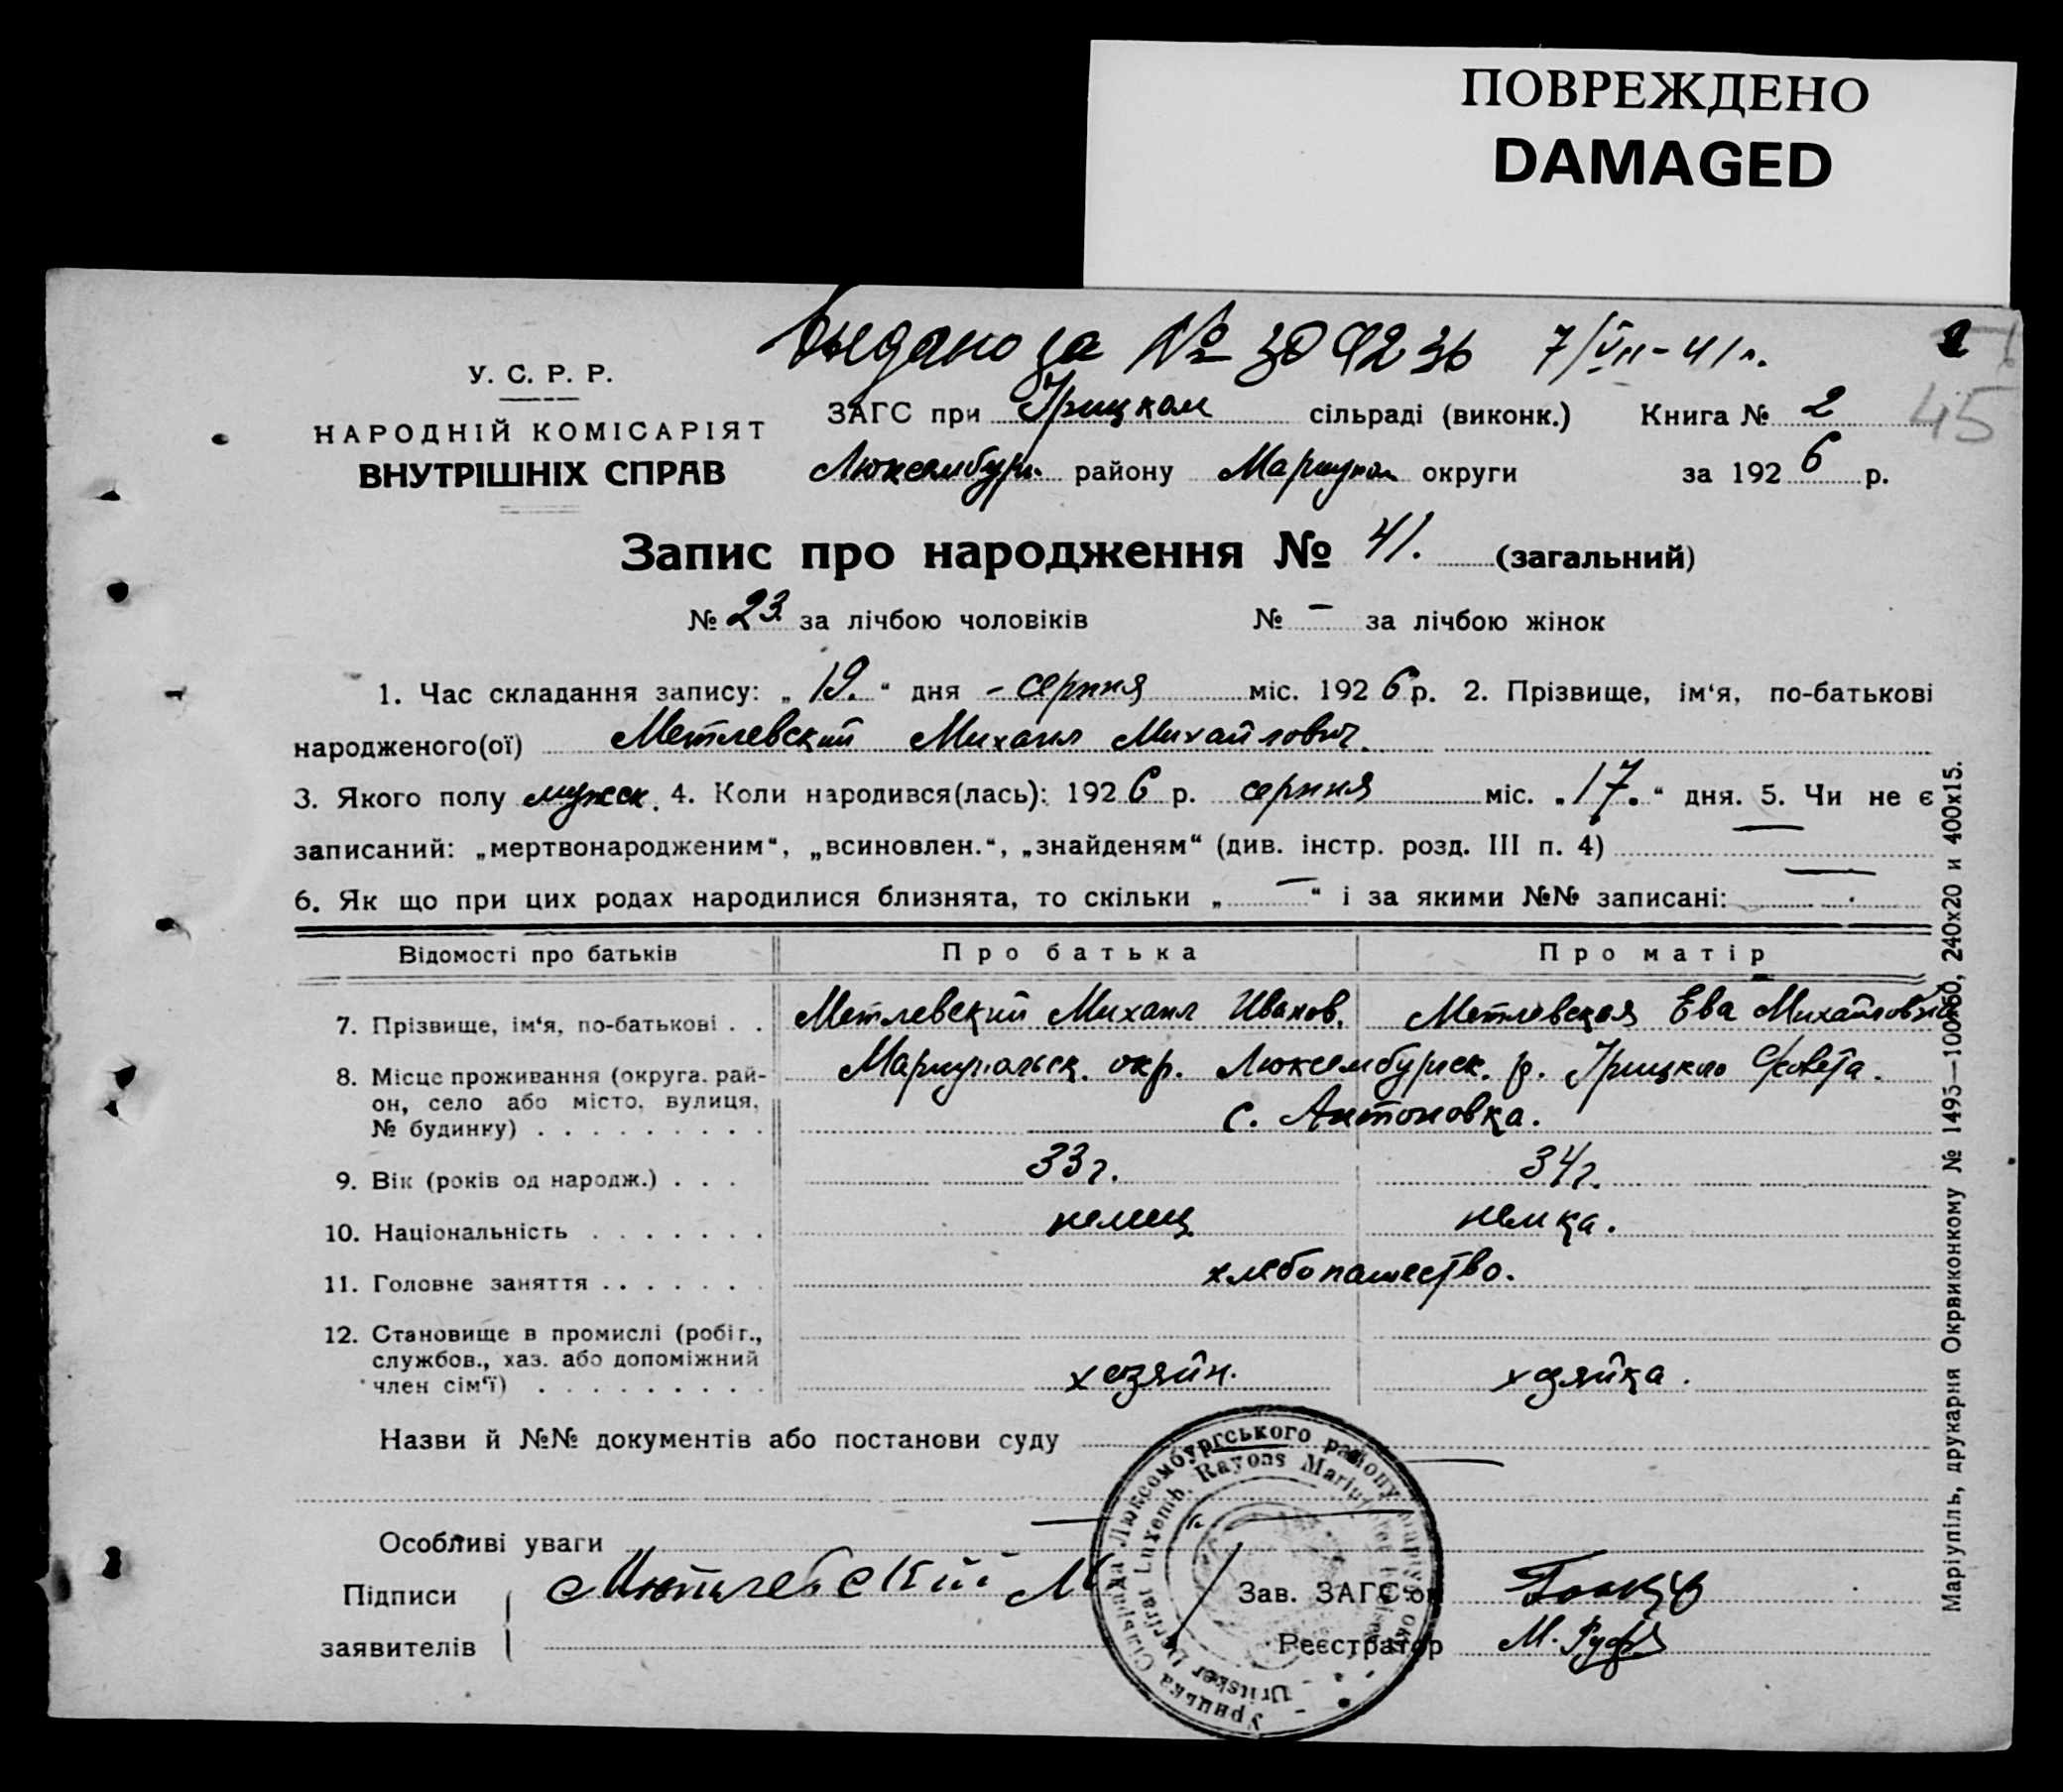 ПОВРЕЖДЕНО
DAMAGED
Выдано за № 7/VII-41 г.
2
45
У. С. Р. Р.
НАРОДНІЙ КОМІСАРІЯТ
ВНУТРІШНІХ СПРАВ
ЗАГС при Урицком сільраді (виконк.) Книга № 2
Люксембург. району Мариуп. округи за 1926 р.
Запис про народження № 41. (загальний)
№ 23 за лічбою чоловіків № – за лічбою жінок
1. Час складання запису: „19.“ дня – серпня міс. 1926 р. 2. Прізвище, ім'я, по-батькові
народженого(ої) Метлевский Михаил Михайлович.
3. Якого полу мужск. 4. Коли народився(лась): 1926 р. серпня міс. „17.“ дня. 5. Чи не є
записаний: „мертвонародженим“, „всиновлен.“, „знайденям“ (див. інстр. розд. III п. 4) —
6. Як що при цих родах народилися близнята, то скільки „—“ і за якими №№ записані: —
Відомості про батьків Про батька Про матір
7. Прізвище, ім'я, по-батькові . . Метлевский Михаил Иванов. Метлевская Ева Михайловна
8. Місце проживання (округа, рай- Мариупольск. окр. Люксембургск. р. Урицкаго Совета.
он, село або місто, вулиця, с. Антоновка.
№ будинку) . . . . . . . . .
9. Вік (років од народж.) . . . 33 г. 34 г.
10. Національність . . . . . . . немец немка.
11. Головне заняття . . . . . . хлебопашество.
12. Становище в промислі (робіг.,
службов., хаз. або допоміжний
член сім'ї) . . . . . . . . . хозяин. хозяйка.
Назви й №№ документів або постанови суду —
Особливі уваги —
Підписи Метлевский М
заявителів
Зав. ЗАГС'ом
Реєстратор М.
Урицька Сільрада Люксембургського району Маріуп. окр.
Uritsker Dorfrat Luxemb. Rayons Mariupoler Kreises
Маріупіль, друкарня Окрвиконкому № 1495—100×60, 240х20 и 400х15.